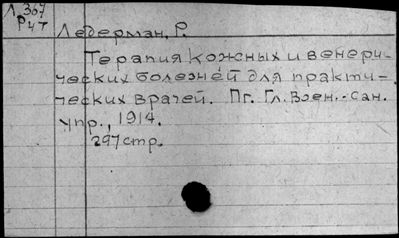 Л.367
Р47
Ледерман, Р.
Терапия кожных и венери-
ческих болезней для практи-
ческих врачей. Пг. Гл. Воен.-Сан.
упр., 1914.
297 стр.